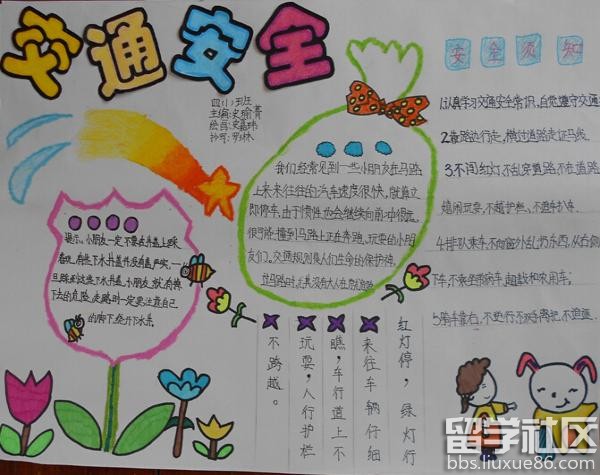 交通安全
四(1)班
主编:史瑜菁
绘画:史嘉玮
抄写:罗琳
我们经常见到一些小朋友在马路
上来来往往的汽车速度很快,就算立
即停车,由于惯性也会继续向前冲很远,
很容易撞到马路上正在奔跑、玩耍的小朋
友们。交通规则是人们生命的保护神,
过马路时,尤其没有大人在旁
提示:小朋友一定不要去井盖上踩来
踩去,有些下水井盖并没有盖严实,一
旦踩到这些下水井盖,小朋友就有掉
下去的危险,走路时一定要注意自己
的脚下,绕开下水井。
安全须知
1.认真学习交通安全常识,自觉遵守交通
2.靠路边行走,横过道路走斑马线。
3.不闯红灯,不乱穿马路,不在道路
嬉闹玩耍,不越护栏、不追车扒车。
4.排队乘车,不向窗外乱扔东西,从右侧
下车,不乘坐超载和农用车;
5.骑车靠右,不逆行,不双手离把,不追逐
红灯停,绿灯行
来往车辆仔细
瞧,车行道上不
玩耍,人行护栏
不跨越。
留学社区
bbs.liuxue86.com